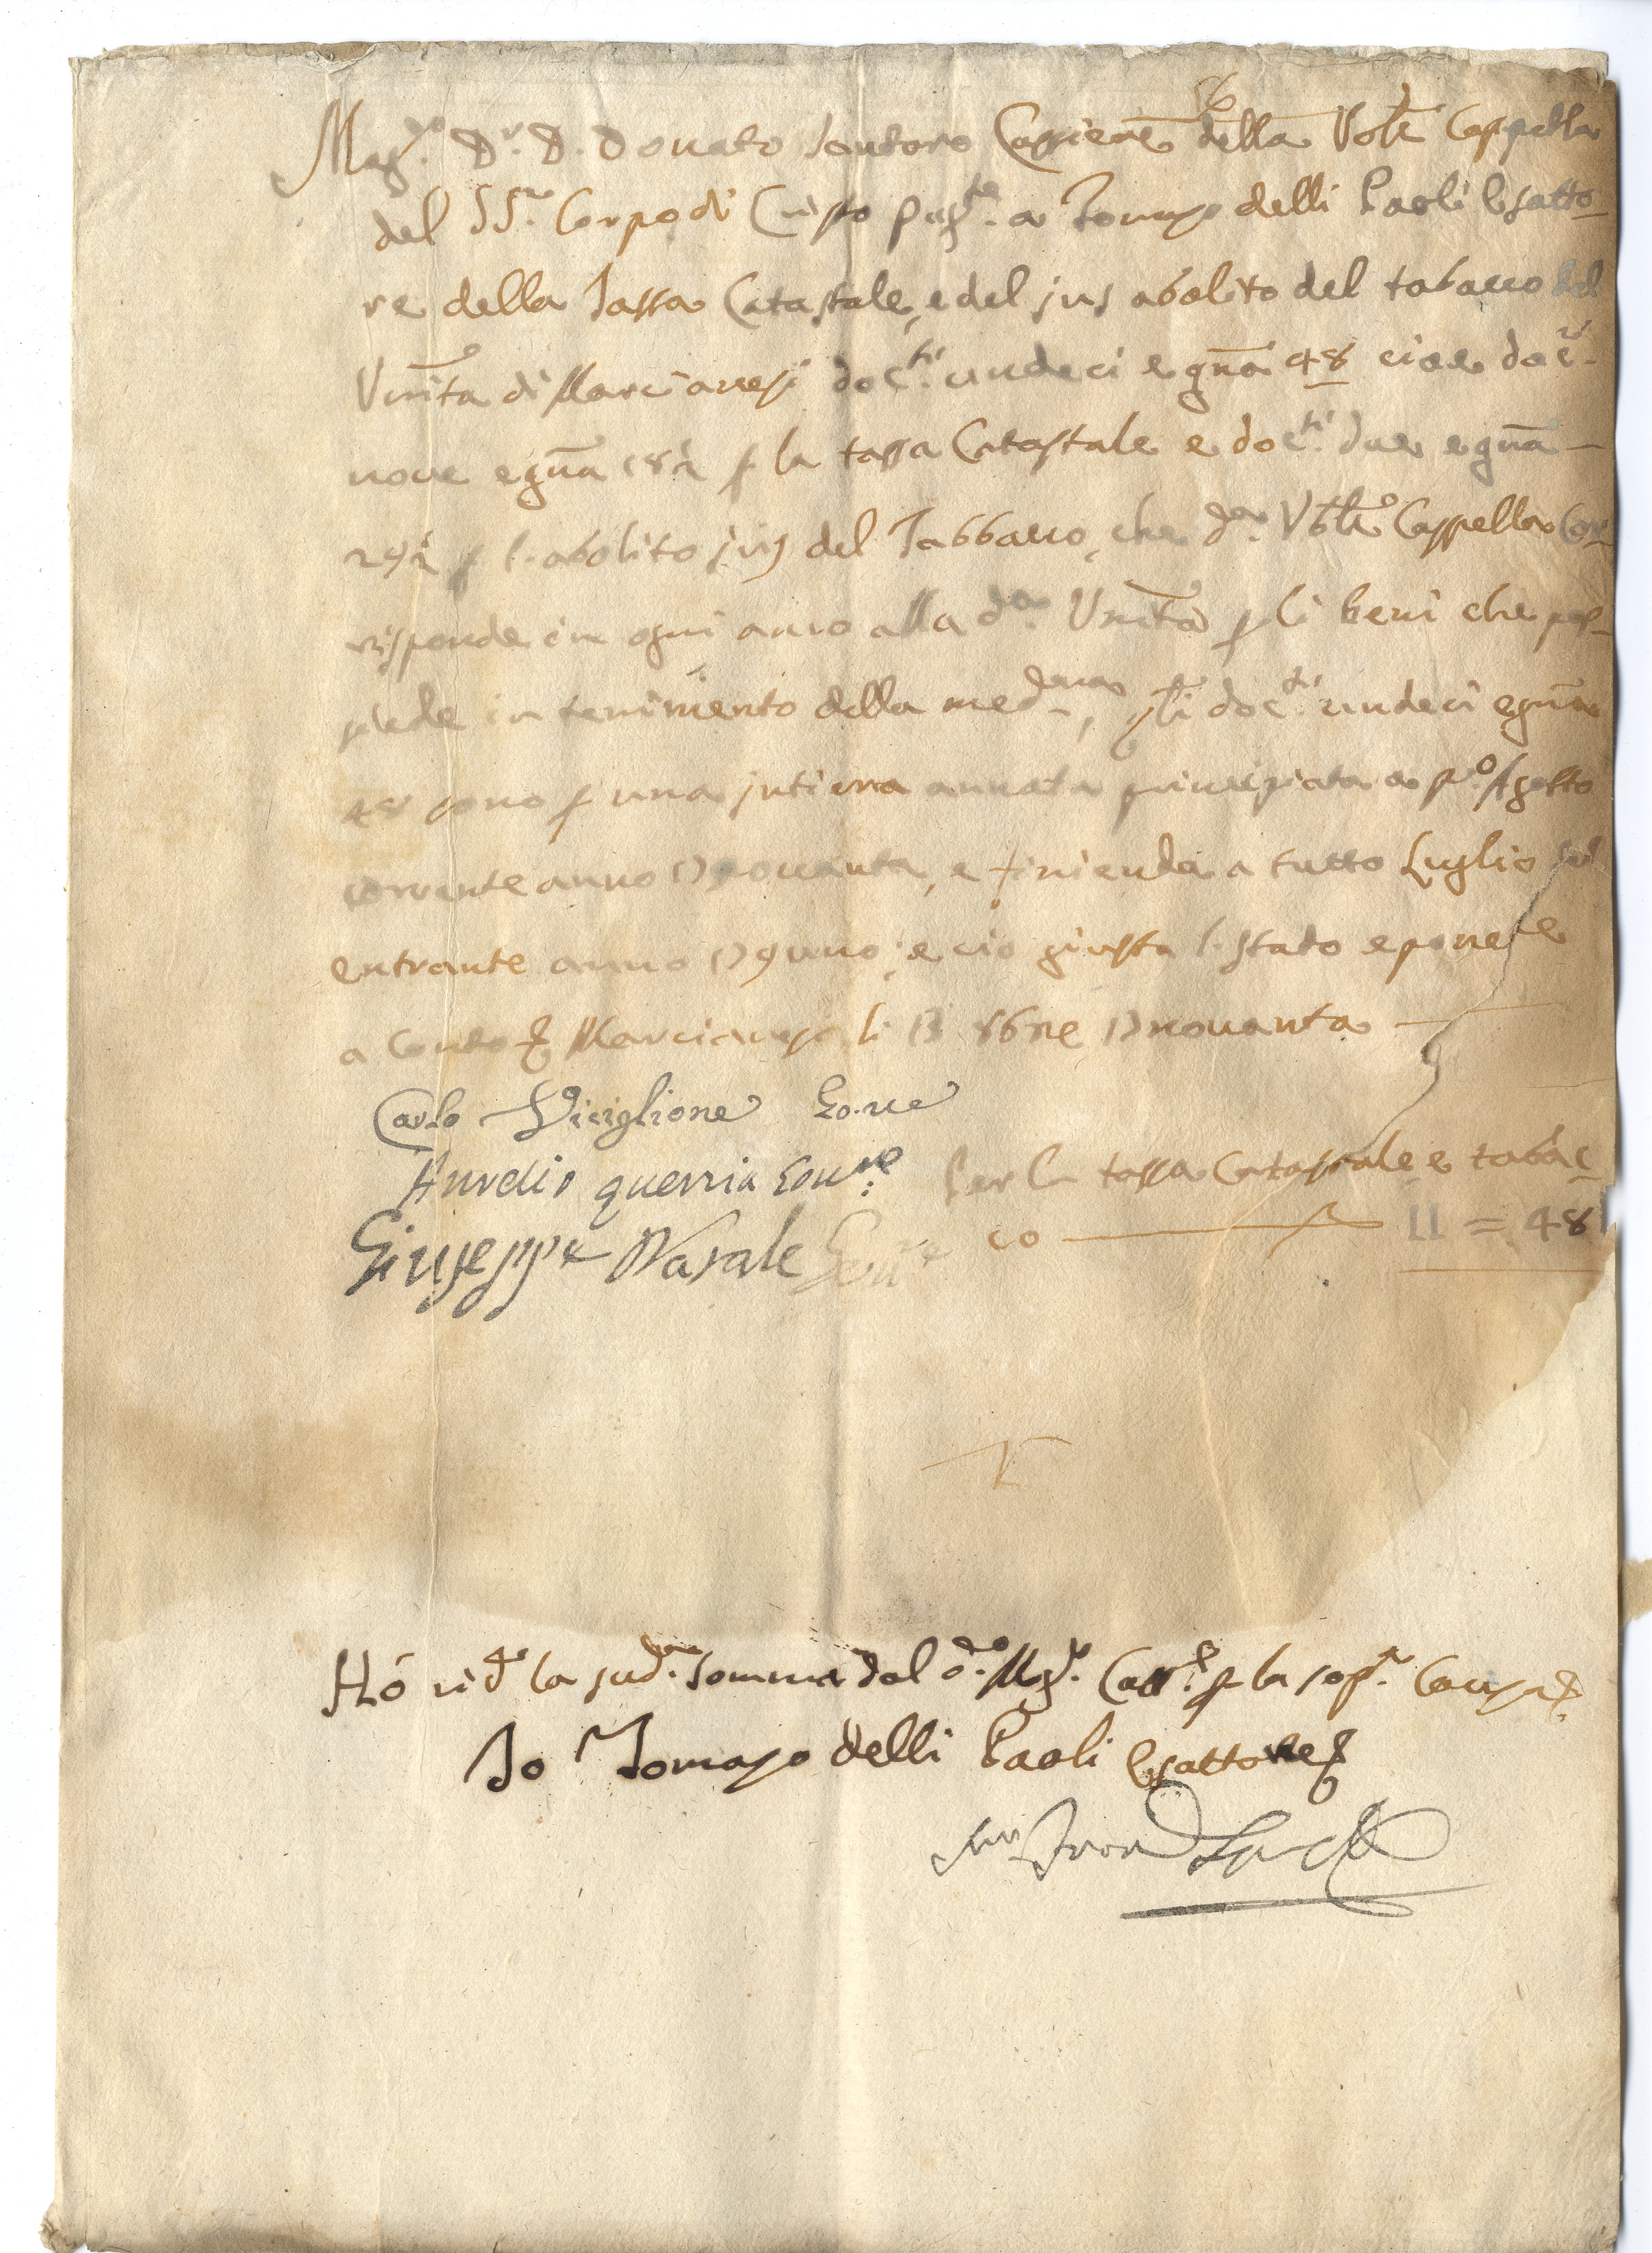 Mag.co Dr. D. Donato Santoro Cassiere della Voble Cappella
del SS.mo Corpo di Cristo pag.te a Tomaso delli Paoli Esatto-
re della Tassa Catastale, e del jus abolito del tabacco del
Unità di Marcianesi doc.ti undeci e gna 48 cioe doc.ti
nove e gna 18½ p la tassa Catastale e doc.ti due e gna
29½ p l'abolito jus del Tabbacco, che da. Voble Cappella Cor-
risponde in ogni anno alla da. Unità p li beni che pos-
siede in tenimento della meda, qli doc.ti undeci e gna
48 sono p una intiera annata principiata a po. Agosto
corrente anno 17novanta, e finienda a tutto Luglio del
entrante anno 179uno; e ciò giusta l. stato e ponete
a conto Marcianesi li 13 8bre 17novanta
Carlo Viciglione Go.re
Aurelio guerria Gov.re
Per la tassa Catastale, e tabac-
Giuseppe Nasale Gov.re
co 11 = 48
Hò ricd. la sud.a somma dal do. Mag.co Cass.re p la sop.a Causa
Io Tomaso delli Paoli Esattore